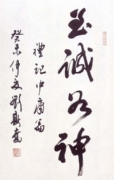 至誠如神
禮記中庸篇
癸未仲夏